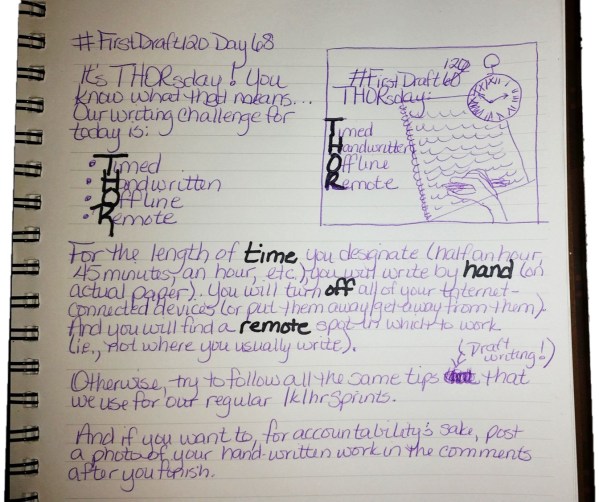 #FirstDraft120 Day 68
It's THORsday! You
know what that means...
Our writing challenge for
today is:
• Timed
• Handwritten
• Offline
• Remote
120
#FirstDraft60
THORsday:
Timed
Handwritten
Offline
Remote
XII
For the length of time you designate (half an hour,
45 minutes, an hour, etc.) you will write by hand (on
actual paper). You will turn off all of your Internet-
connected devices (or put them away/get away from them).
And you will find a remote spot in which to work
(i.e., not where you usually write).
(Draft
writing!)
Otherwise, try to follow all the same tips that
we use for our regular 1k1hr sprints.
And if you want to, for accountability's sake, post
a photo of your hand-written work in the comments
after you finish.